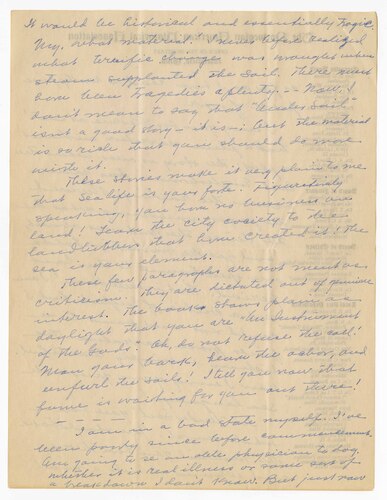 It would be historical and essentially tragic.
My, what material. I never before realized
what terrific change was wrought when
steam supplanted the sail. There must
have been tragedies aplenty. -- Now, I
don't mean to say that "Under Sail"
isn't a good story - it is; but the material
is so rich that you should do more
with it.
These stories make it very plain to me
that Sea life is your forte. Figuratively
speaking, you have no business on
land! Leave the city society to the
landlubbers that have created it! The
sea is your element.
These few paragraphs are not meant as
criticism. They are dictated out of genuine
interest. The book shows plain as
daylight that you are "An Instrument
of the Gods." Oh, do not refuse the call!
Man your bark, leave the harbor, and
unfurl the sails! I tell you now that
fame is waiting for you out there!
I am in a bad state myself. I've
been poorly since before commencement.
Am going to see an able physician to-day.
Whether it is real illness or some sort of
a breakdown I don't know. But just now